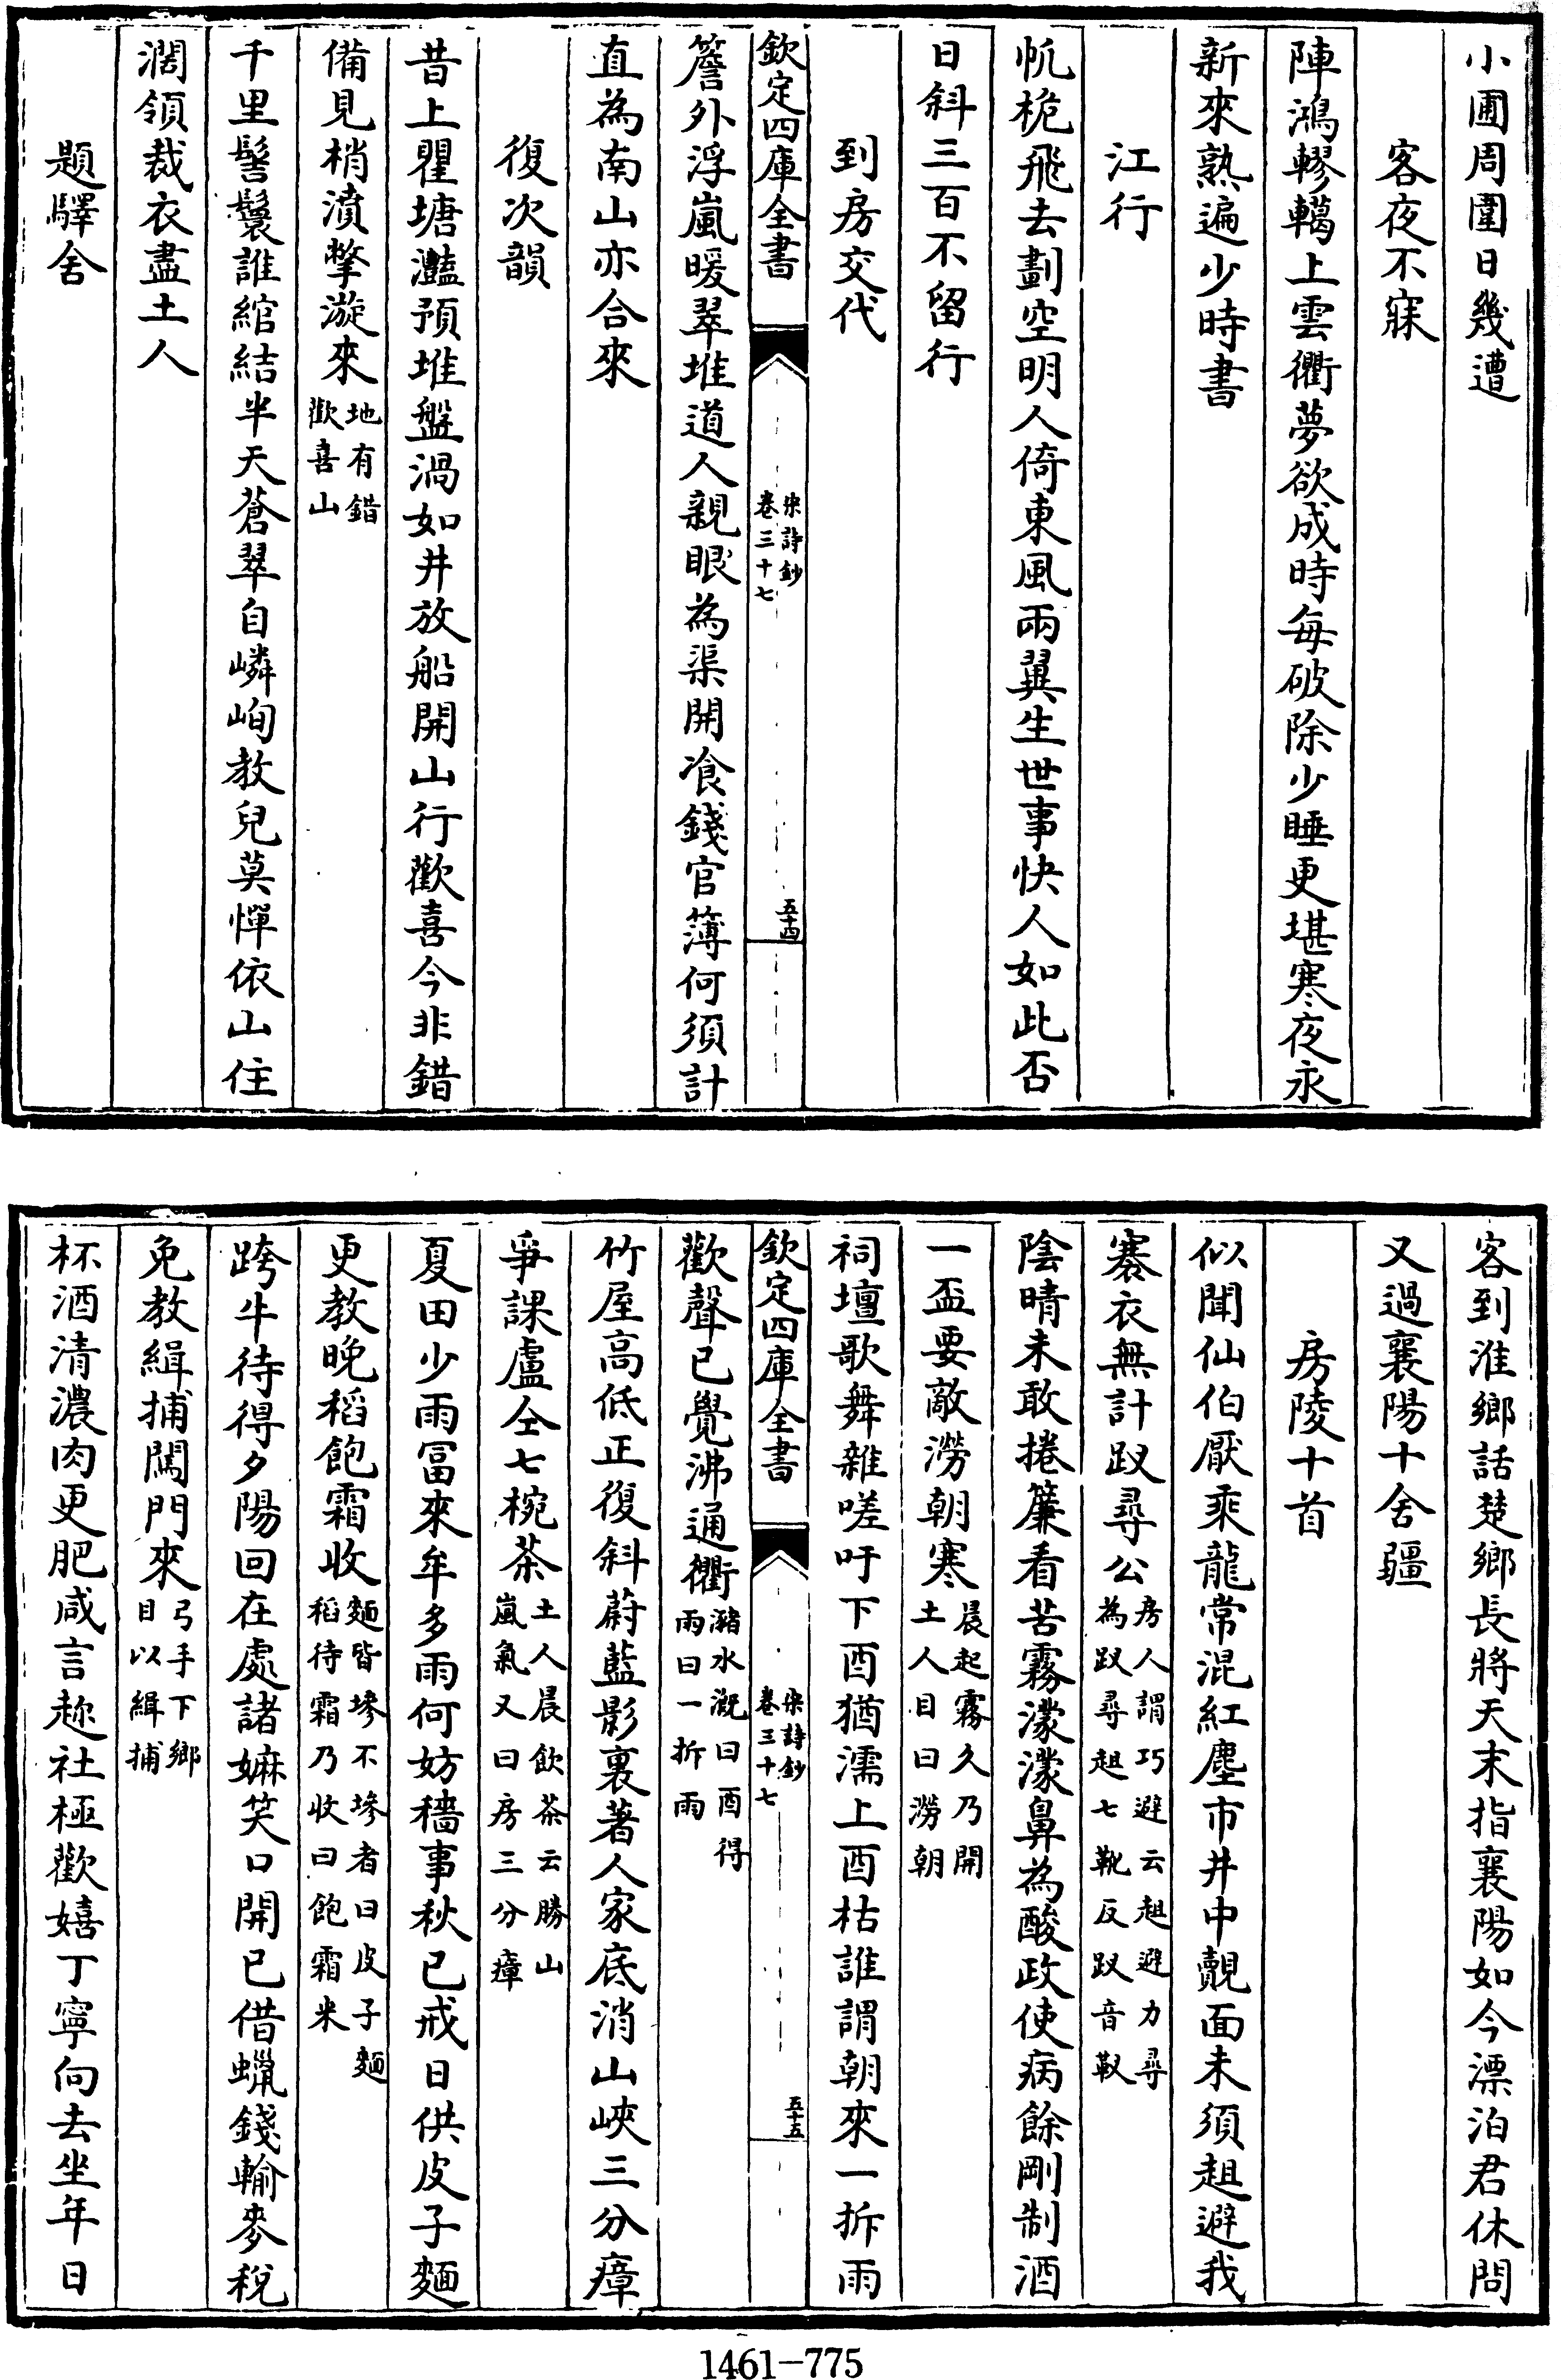 小圃周圍日幾遭
客夜不寐
陣鴻轇轕上雲衢夢欲成時每破除少睡更堪寒夜永
新來熟遍少時書
江行
帆桅飛去劃空明人倚東風兩翼生世事快人如此否
日斜三百不留行
到房交代
欽定四庫全書
宋詩鈔
卷三十七
五十四
簷外浮嵐暖翠堆道人親眼為渠開飡錢官簿何須計
直為南山亦合來
復次韻
昔上瞿塘灩預堆盤渦如井放船開山行歡喜今非錯
備見梢濆撆漩來地有錯
歡喜山
千里髻鬟誰綰結半天蒼翠自嶙峋教兒莫憚依山住
濶領裁衣盡土人
題驛舍
客到淮鄉話楚鄉長將天末指襄陽如今漂泊君休問
又過襄陽十舍疆
房陵十首
似聞仙伯厭乘龍常混紅塵市井中覿面未須趄避我
褰衣無計趿尋公房人謂巧避云趄避力尋
為趿尋趄七靴反趿音靸
陰晴未敢捲簾看苦霧濛濛鼻為酸政使病餘剛制酒
一盃要敵澇朝寒晨起霧久乃開
土人目曰澇朝
祠壇歌舞雜嗟吁下酉猶濡上酉枯誰謂朝來一拆雨
欽定四庫全書
宋詩鈔
卷三十七
五十五
歡聲已覺沸通衢瀦水溉曰酉得
雨曰一拆雨
竹屋高低正復斜蔚藍影裏著人家底消山峽三分瘴
爭課盧仝七椀茶土人晨飲茶云勝山
嵐氣又曰房三分瘴
夏田少雨冨來牟多雨何妨穡事秋已戒日供皮子麵
更教晚稻飽霜收麵皆墋不墋者曰皮子麵
稻待霜乃收曰飽霜米
跨牛待得夕陽回在處諸嫲笑口開已借蠟錢輸麥稅
免教緝捕闖門來弓手下鄉
目以緝捕
杯酒清濃肉更肥咸言趂社極歡嬉丁寧向去坐年日
1461-775